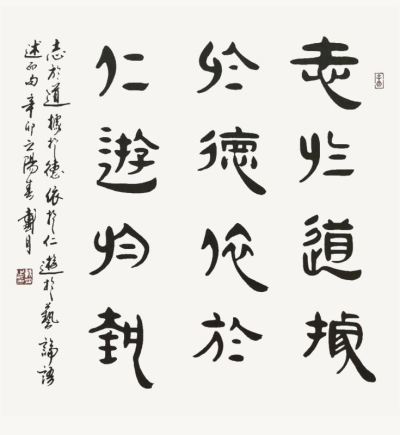 志於道據
於德依於
仁遊於埶
志於道據於德依於仁遊於藝論語
述而句辛卯之陽春戴月